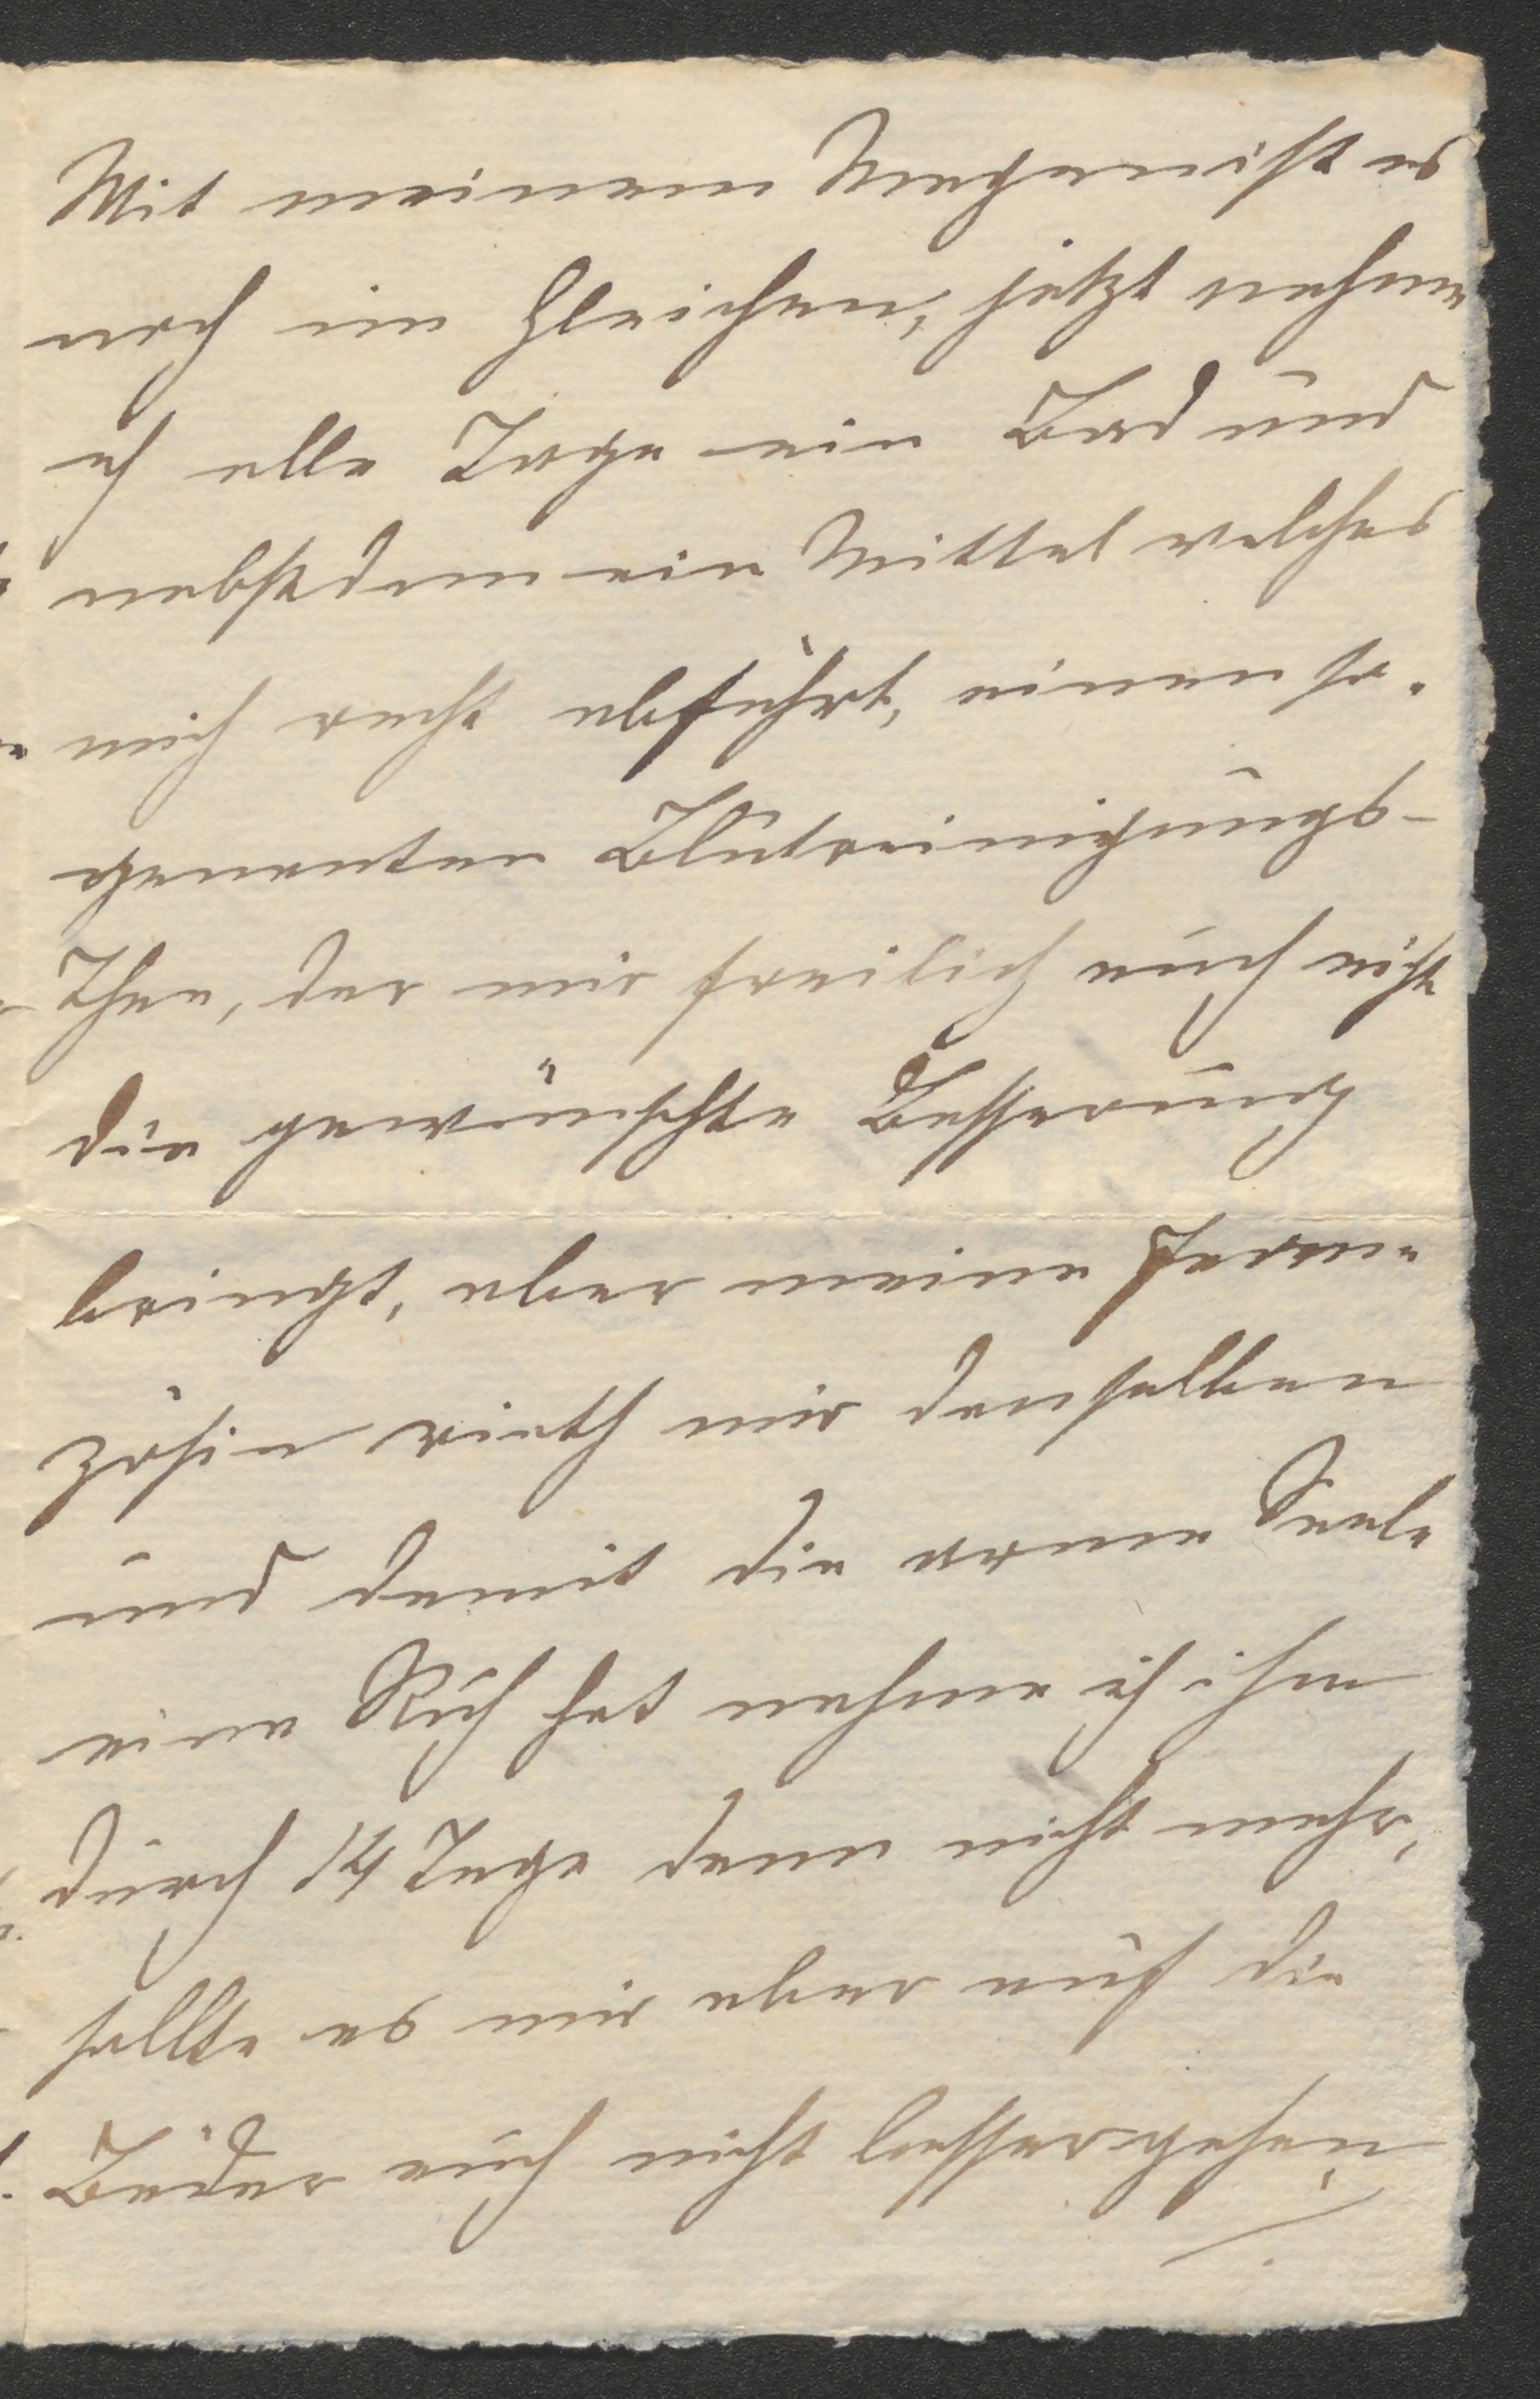 Mit meinem Magen ist es
noch im Gleichen, jetzt nehme
ich alle Tage ein Bad und
nebstdem ein Mittel welches
mich recht abführt, einen so-
genanten Blutreinigungs-
Thee, der mir freilich auch nicht
die gewünschte Besserung
bringt, aber meine Fran-
zösin rieth mir denselben
und damit die arme Seele
eine Ruh hat nehme ich ihn
durch 14 Tage dann nicht mehr,
sollte es mir aber auf die
Bäder auch nicht besser gehen,